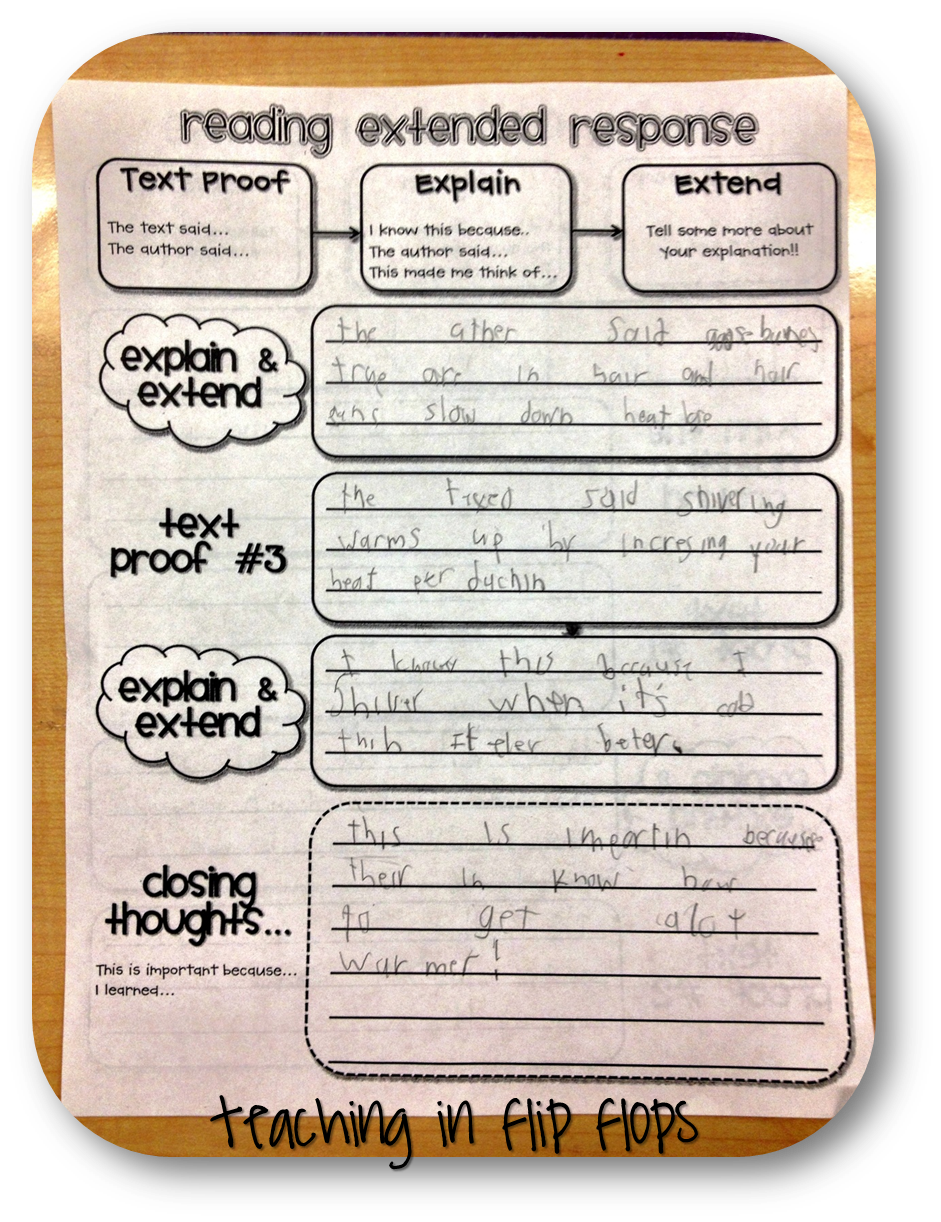 reading extended response
Text Proof
The text said...
The author said...
Explain
I know this because..
The author said...
This made me think of...
Extend
Tell some more about
your explanation!!
explain &
extend
the ather said goosebumps
true are in hair and hair
slow down heat lose
text
proof #3
the tixed said shivering
warms up by incresing your
heat per duchin
explain &
extend
I know this because I
Shiver when it's cold
beter.
closing
thoughts...
This is important because...
I learned...
this is impartin because
their in know how
to get alot
warmer!
teaching in flip flops